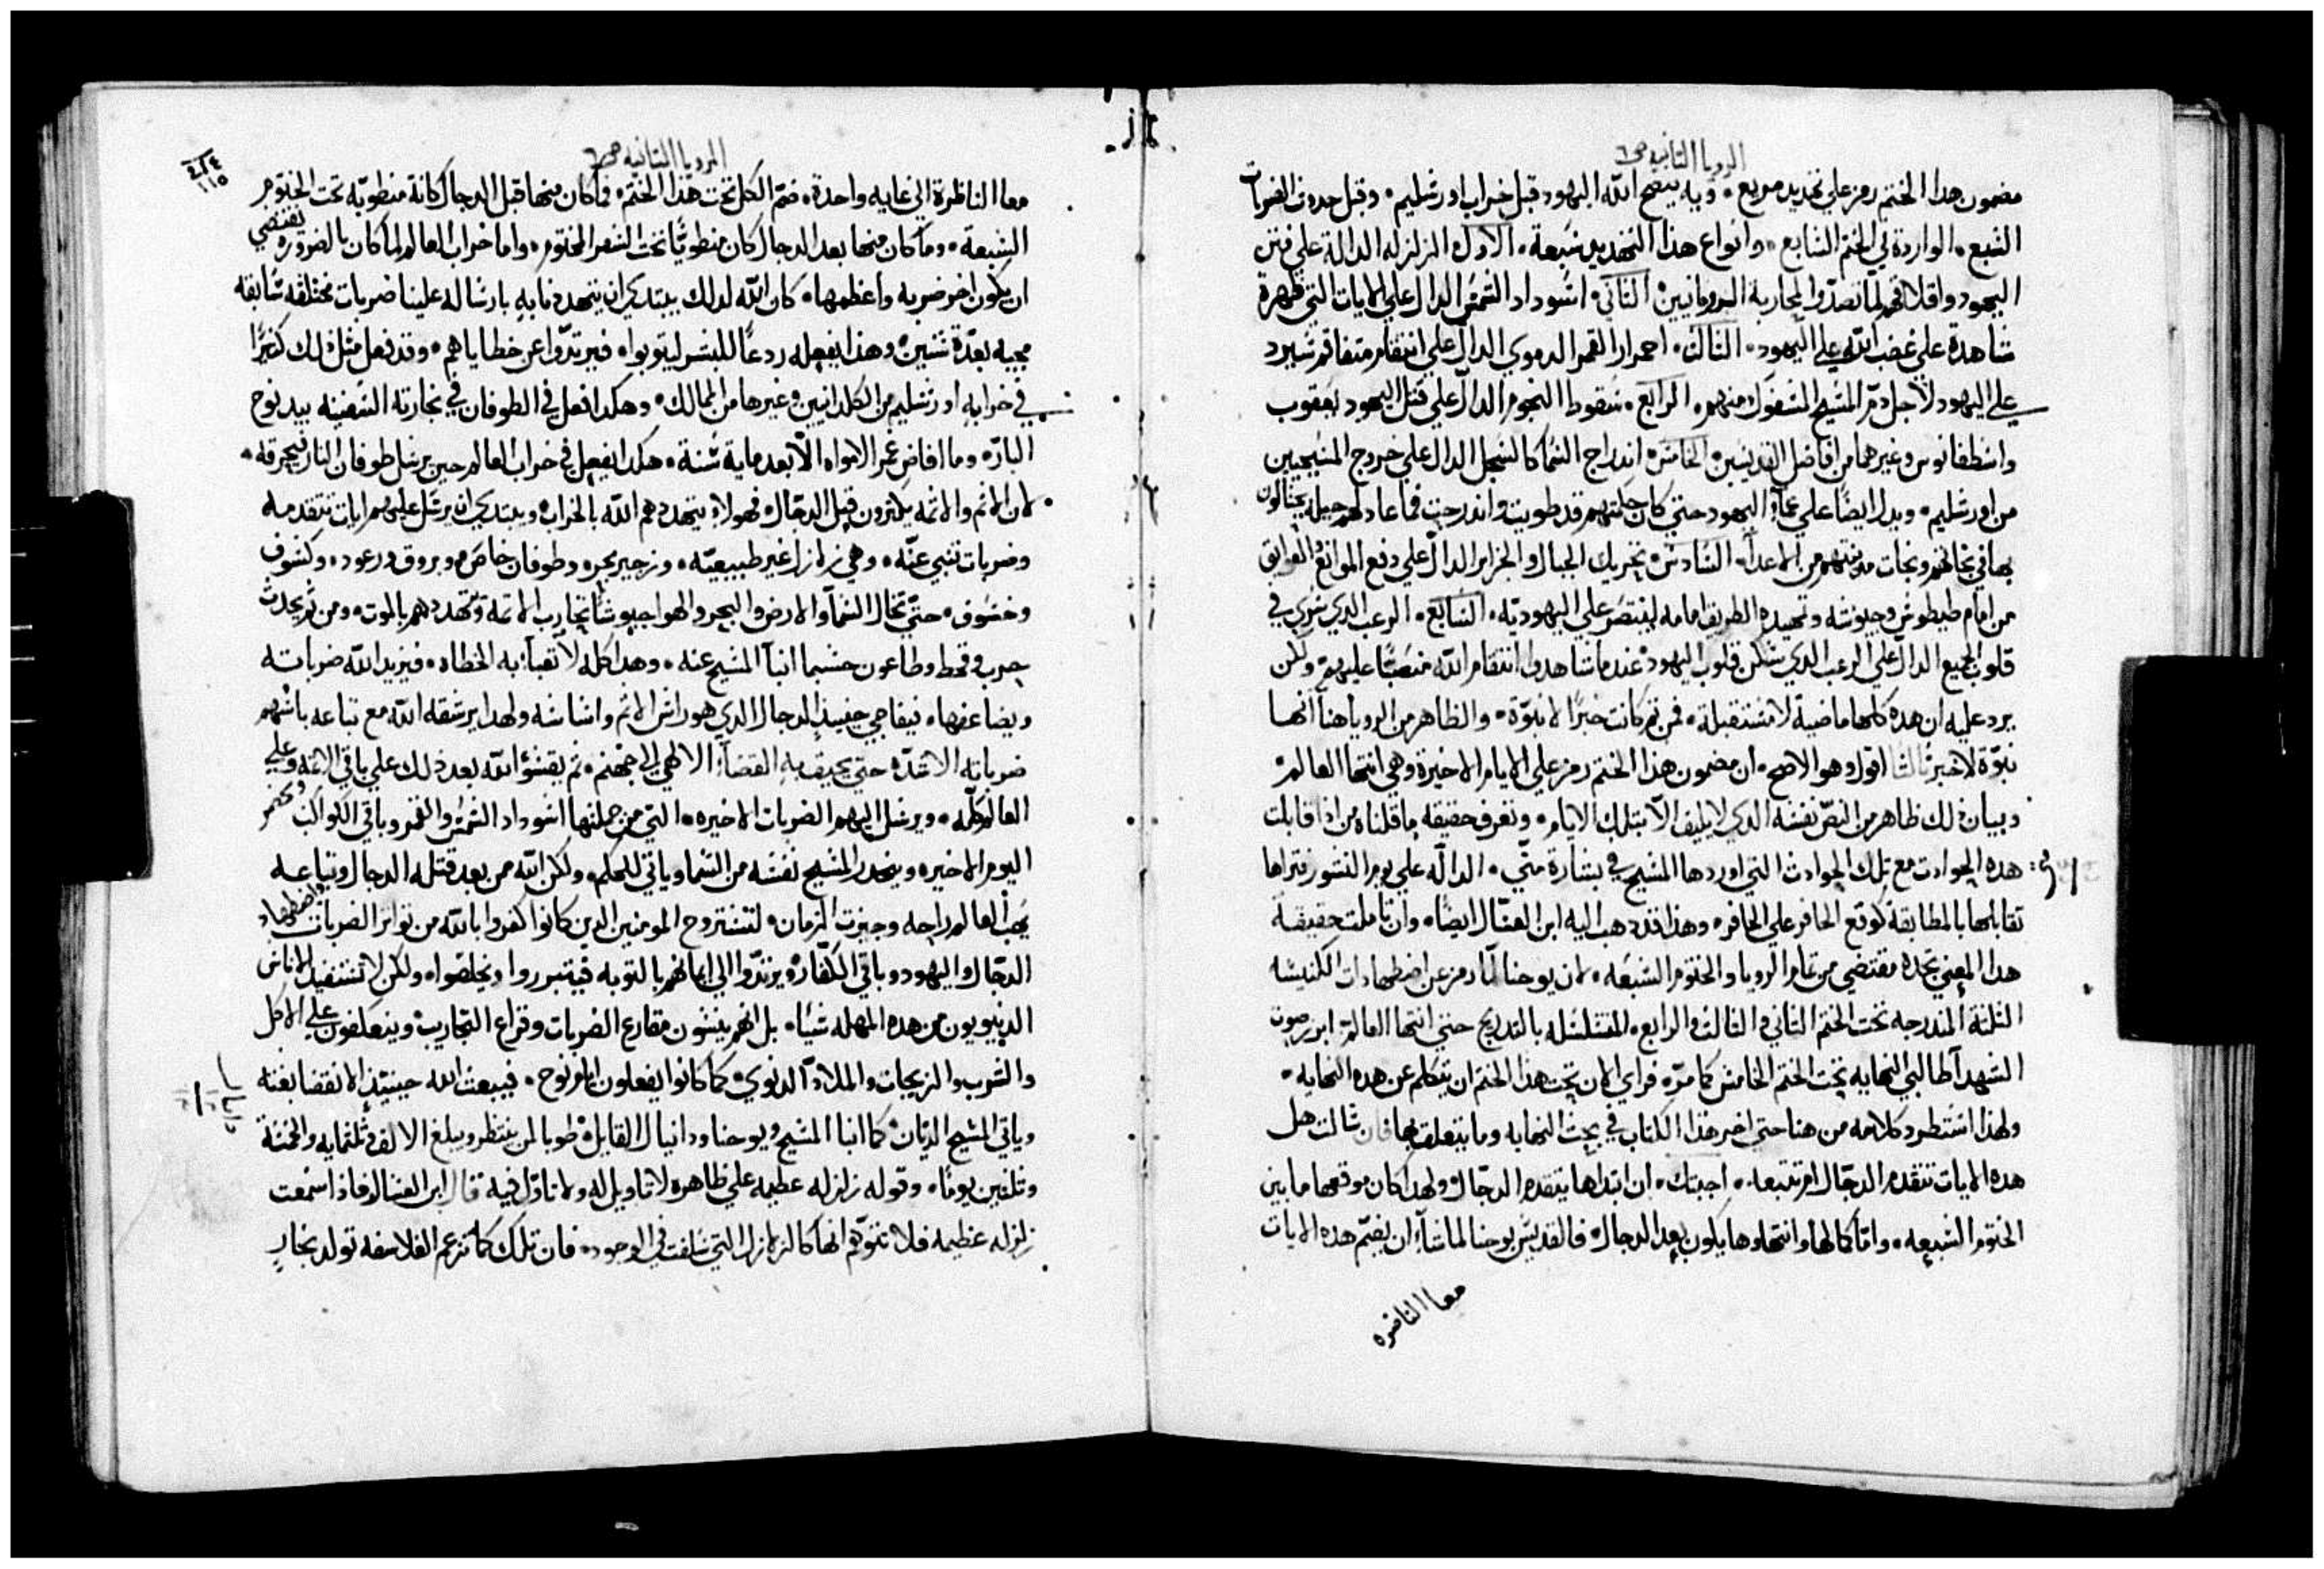 الرويا الثانيه ص٦
مضمون هدا الختم رمز علي تهديد مريع، وبه ينصح الله اليهود قبل خراب اورشليم، وقبل حدوث الضربات
السبع، الواردة في الختم السابع، وانواع هذا التهديد سبعة، الاول الزلزله الدالة علي فتن
اليهود واقلاقهم لما تصدّوا لمحاربة الرومانيين، الثاني، اسوداد الشمس الدال علي الايات التي ظهرة
شاهدة علي غضب الله علي اليهود، الثالث، احمرار القمر الدموي الدال علي انتقام متفاقم سيرد
علي اليهود لاجل دم المسيح المسفوك منهم، الرابع، سقوط النجوم الدال علي قتل اليهود يعقوب
واسطفانوس وغيرهما من افاضل القديسين، الخامس، اندراج السما كالسجل الدال علي خروج المسيحيين
من اورشليم، ويدل ايضًا علي عمآء اليهود حتي كان حكمتهم قد طويت واندرجت فما عاد لهم حيلة يحتالون
بها في نجاتهم ونجات مدينتهم من الاعدآ، السادس، تحريك الجبال والجزاير الدال علي دفع الموانع والعوايق
من امام طيطوس وجيوشه وتمهيده الطريق امامه لينتصر علي اليهوديّه، السابع، الرعب الدي سري في
قلوب الجميع الدال علي الرعب الدي سكن قلوب اليهود عندما شاهدوا انتقام الله منصبًّا عليهم، ولكن
يرد عليه ان هده كلها ماضية لا مستقبلة، فمن ثم كانت خبرًا لا نبوّة، والظاهر من الرويا هنا انها
نبوّة لا خبر ثالثا اقول وهو الاصح، ان مضمون هذا الختم رمز علي الايام الاخيرة وهي انتها العالم،
وبيان ذلك ظاهر من النصّ نفسه الدي لا يليق الّا بتلك الايام، وتعرف حقيقة ما قلناه من اذا قابلت
هده الحوادث مع تلك الحوادث التي اوردها المسيح في بشارة متّي، الدالّه علي يوم النشور فتراها
تقابلها بالمطابقة كوقع الحافر علي الحافر، وهذا قد دهب اليه ابن العسّال ايضًا، وان تاملت حقيقة
هدا المعني تجده مقتضي من تمام الرويا والختوم السبعه، لان يوحنا لمّا رمز عن اضطهادات الكنيسه
الثلثة المندرجه تحت الختم الثاني والثالث والرابع، المتسلسله بالتدريج حتي انتها العالم، ابرز صوت
الشهدآ طالبي النهايه تحت الختم الخامس كما مرّ، فراي الان تحت هذا الختم ان يتكلم عن هده النهايه،
ولهذا استطرد كلامه من هنا حتي اخر هذا الكتاب في بحث النهايه وما يتعلق بها فان سالت هل
هده الايات تتقدم الدجّال ام تتبعه، اجبتك، ان ابتداها يتقدم الدجّال ولهدا كان موقعها ما بين
الختوم السبعه، وامّا كمالها وانتهاوها يكون بعد الدجال، فالقديس يوحنا لما شآء ان يضمّ هده الايات
معا الناضره
الرويا الثانيه ص٦
معا الناظرة الي غايه واحدة، ضمّ الكل تحت هذا الختم، فما كان منها قبل الدجال كانة منطويّه تحت الختوم
السبعة، وما كان منها بعد الدجال كان منطويًّا تحت السفر المختوم، واما خراب العالم لما كان بالضروره يقتضي
ان يكون اخر ضربه واعظمها، كان الله لدلك يبتدي ان يتهددنا به بارساله علينا ضربات مختلفه سابقه
مجيه بعدّة سنين، وهدا يفعله ردعًا للبشر ليتوبوا، فيرتدّوا عن خطاياهم، وقد فعل مثل دلك كثيرًا
في خرابه اورشليم من الكلدانيين وغيرها من الممالك، وهكدا فعل في الطوفان في نجارته السفينه بيد نوح
البارّ، وما افاض غمر الامواه الّا بعد ماية سنة، هكدا يفعل في خراب العالم حين يرسل طوفان النار فيحرقه،
لان الاثم والاثمه يكثرون قبل الدجّال، فهولآء يتهددهم الله بالخراب، ويبتدي ان يرسل عليهم ايات تتقدمه
وضربات تنبي عنّه، وهي زلازل غير طبيعيّه، وزجير بحر، وطوفان خاص، وبروق ورعود، وكسوف
وخسوف، حتّي تخال السمآ والارض والبحر والهوا جيوشًا تحارب الاثمة وتهددهم بالموت، ومن ثم يحدث
حرب وقحط وطاعون حسبما انبآ المسيح عنه، وهدا كله لا تعبأ به الخطاه، فيزيد الله ضرباته
ويضاعفها، فيفاجي حينيذٍ الدجال الدي هو راس الاثم واساسه ولهدا يرشقه الله مع تباعه باسهم
ضرباته الاشدّ، حتي يحيف به القضآء الالهي الي جهنم، ثم يقسوا الله بعد ذلك علي باقي الاثمه وعلي
العالم كلّه، ويرسل اليهم الضربات الاخيره، التي من جملتها اسوداد الشمس والقمر وباقي الكواكب ويحضر
اليوم الاخير، وينحدر المسيح نفسه من السما وياتي للحكم، ولكن الله من بعد قتله الدجال وتباعه
يهب العالم راحه وجيزت الزمان، لتستروح المومنين الدين كانوا كفروا بالله من تواتر الضربات واضطهاد
الدجّال واليهود وباقي الكفّار، ويرتدّوا الي ايمانهم بالتوبه فيتبرروا ويخلصوا، ولكن لا تستفيد الاناس
الدنيويون من هده المهله شيًا، بل انهم ينسون مقارع الضربات وقراع التجارب، وينعكفون علي الاكل
والشرب والزيجات والملادّ الدنوي، كما كانوا يفعلون ايام نوح، فيبعث الله حينيئذٍ الانقضا بغتة
وياتي المسيح الديّان، كما انبا المسيح ويوحنا ودانيال القايل، طوبا لمن ينتظر ويبلغ الالف وثلثمايه والخمسة
وثلثين يومًا، وقوله زلزله عظيمه علي ظاهره لا تاويل له ولا تاوّل فيه قال ابن العسال فاذا سمعت
زلزله عظيمه فلا تتوّهم انها كالزلازل التي سلفت في الوجود، فان تلك كما تزعم الفلاسفه تولد بخارٍ